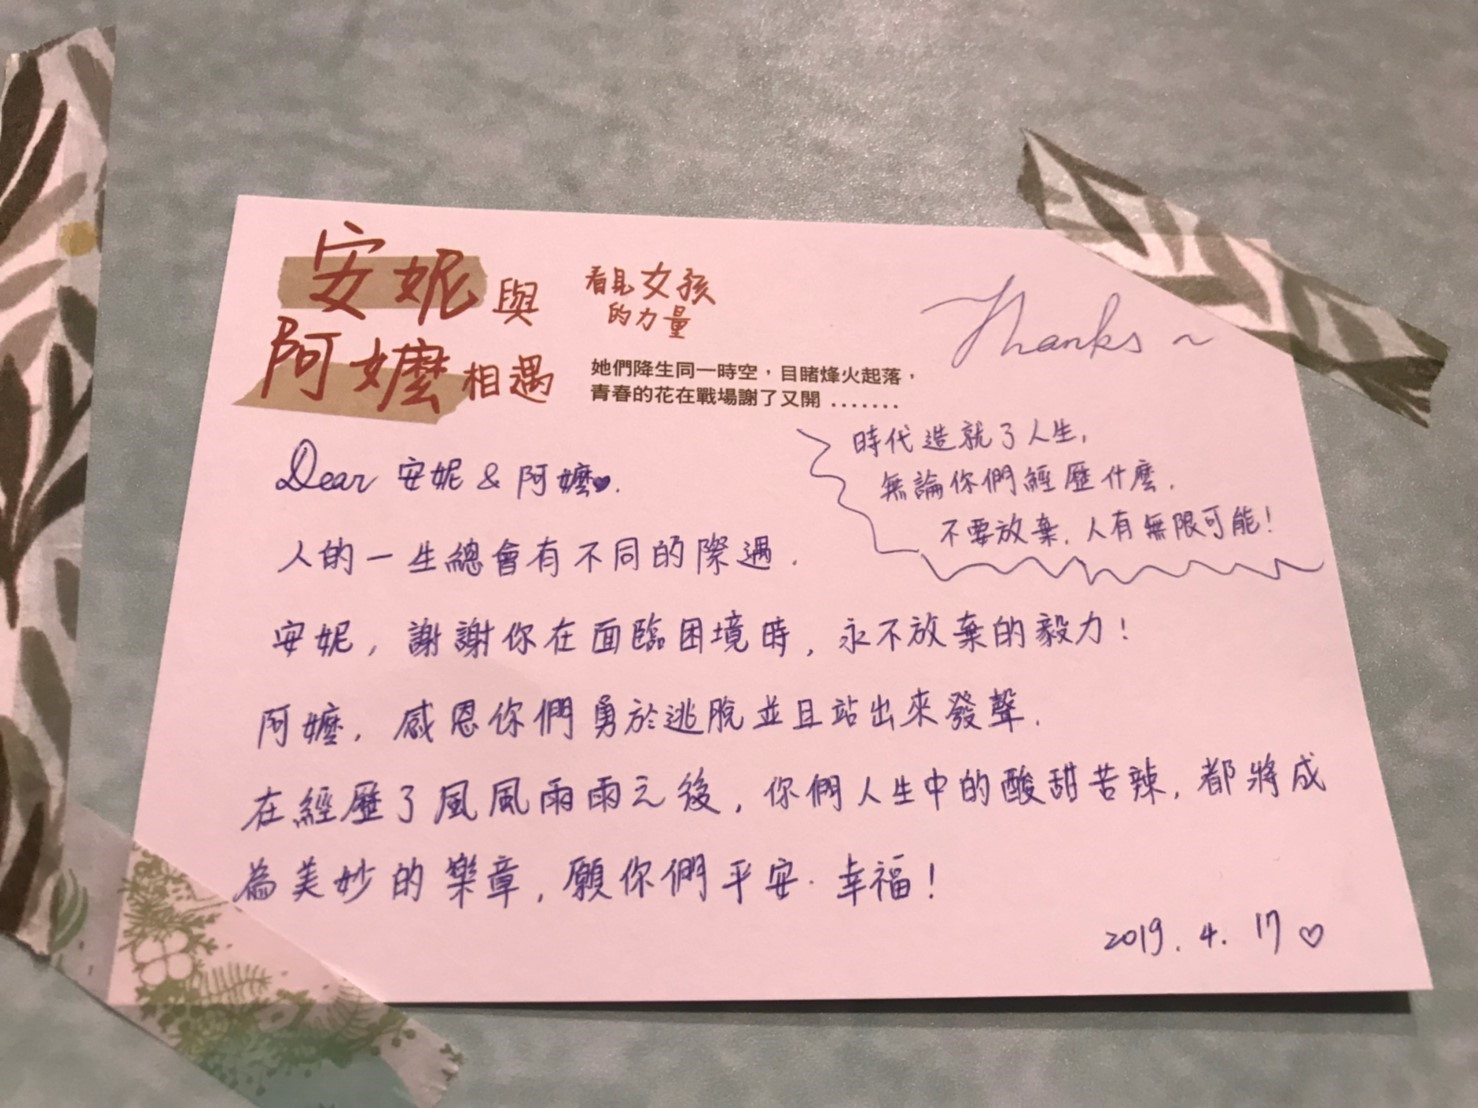 安妮與
阿嬤相遇
看見女孩
的力量
她們降生同一時空，目睹烽火起落，
青春的花在戰場謝了又開.......
Thanks ~
時代造就了人生,
無論你們經歷什麼.
不要放棄. 人有無限可能!
Dear 安妮 & 阿嬤♥.
人的一生總會有不同的際遇.
安妮, 謝謝你在面臨困境時, 永不放棄的毅力!
阿嬤, 感恩你們勇於逃脫並且站出來發聲.
在經歷了風風雨雨之後, 你們人生中的酸甜苦辣, 都將成
為美妙的樂章, 願你們平安. 幸福!
2019. 4. 17 ♡